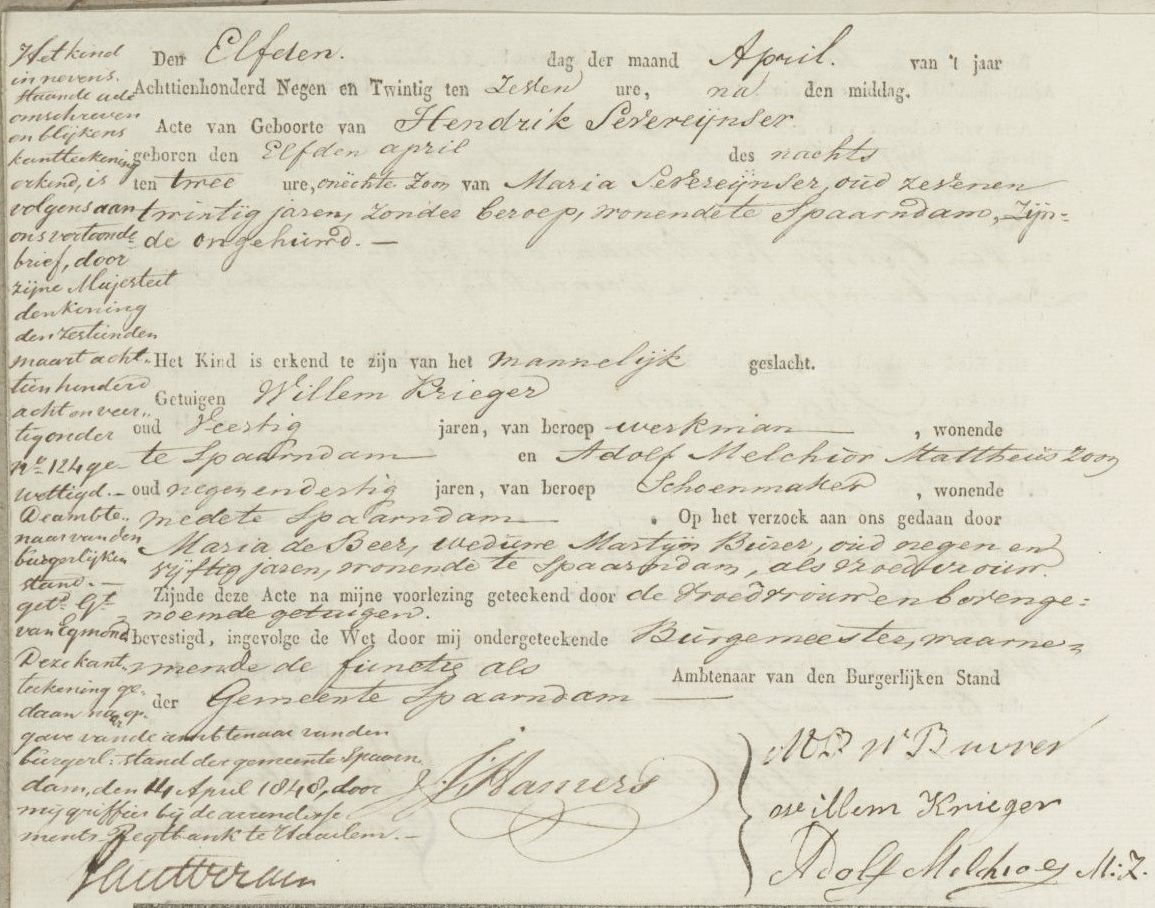 Den Elfden. dag der maand April. van 't jaar
Achttienhonderd Negen en Twintig ten zeven ure, na den middag.
Acte van Geboorte van Hendrik Severeijnser.
geboren den Elfden april des nachts
ten twee ure, onëchte Zoon van Maria Severeijnser, oud zevenen
twintig jaren, zonder beroep, wonende te Spaarndam, Zijn=
de ongehuwd. —
Het Kind is erkend te zijn van het mannelijk geslacht.
Getuigen Willem Krieger
oud Veertig jaren, van beroep werkman , wonende
te Spaarndam en Adolf Melchior Mattheüs Zoon
oud negen en dertig jaren, van beroep Schoenmaker , wonende
mede te Spaarndam . Op het verzoek aan ons gedaan door
Maria de Beer, weduwe Martijn Burer, oud negen en
vijftig jaren, wonende te Spaarndam, als vroedvrouw.
Zijnde deze Acte na mijne voorlezing geteekend door de vroedvrouw en bovenge=
noemde getuigen.
bevestigd, ingevolge de Wet door mij ondergeteekende Burgemeester, waarne=
mende de functie als Ambtenaar van den Burgerlijken Stand
der Gemeente Spaarndam
Willem Krieger
Adolf Melchior M:Z.
Het kind
in nevens.
staande acte
omschreven
en blijkens
kantteekening
erkend, is
volgens aan
ons vertoonde
brief, door
zijne Majesteit
den koning
den zestienden
maart acht-
tien honderd
acht en veer-
tig onder
No. 124 ge-
wettigd. —
De ambte-
naar van den
burgerlijken
stand. —
getd. Gt.
van Egmond
Deze kant-
teekening ge-
daan naar op-
gave van de ambtenaar van den
burgerl: stand der gemeente Spaarn
dam, den 14 April 1848, door
mij griffier bij de arrondisse
ments Regtbank te Haarlem. —